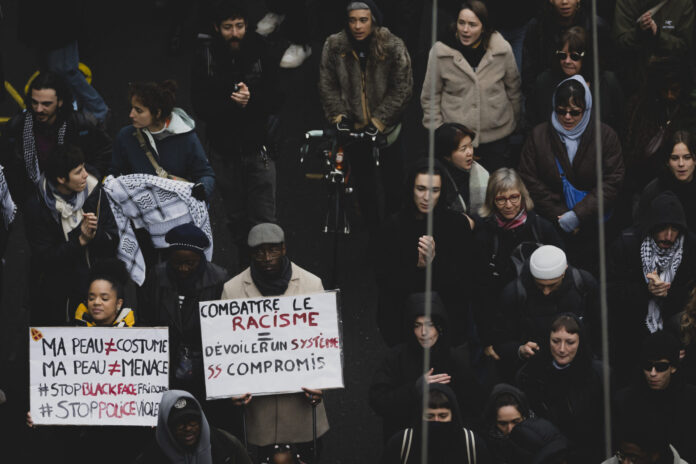 MA PEAU ≠ COSTUME
MA PEAU ≠ MENACE
#STOPBLACKFACEFRIBOURG
#STOPPOLICEVIOLENCE
COMBATTRE LE
RACISME
=
DÉVOILER UN SYSTÈME
SS COMPROMIS